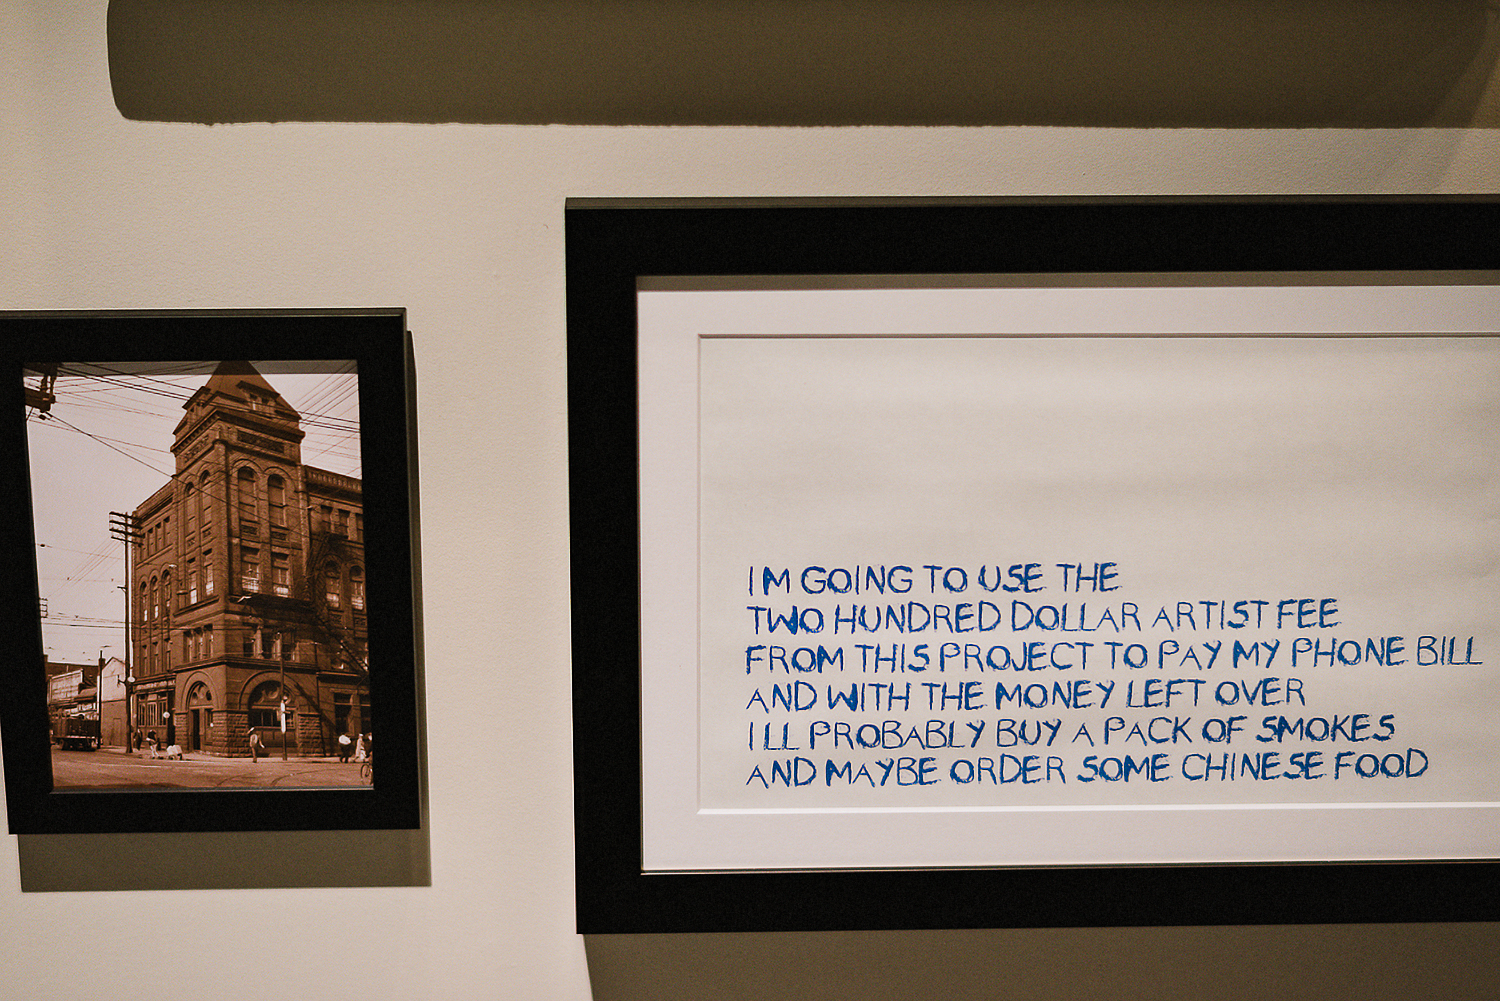 IM GOING TO USE THE
TWO HUNDRED DOLLAR ARTIST FEE
FROM THIS PROJECT TO PAY MY PHONE BILL
AND WITH THE MONEY LEFT OVER
ILL PROBABLY BUY A PACK OF SMOKES
AND MAYBE ORDER SOME CHINESE FOOD